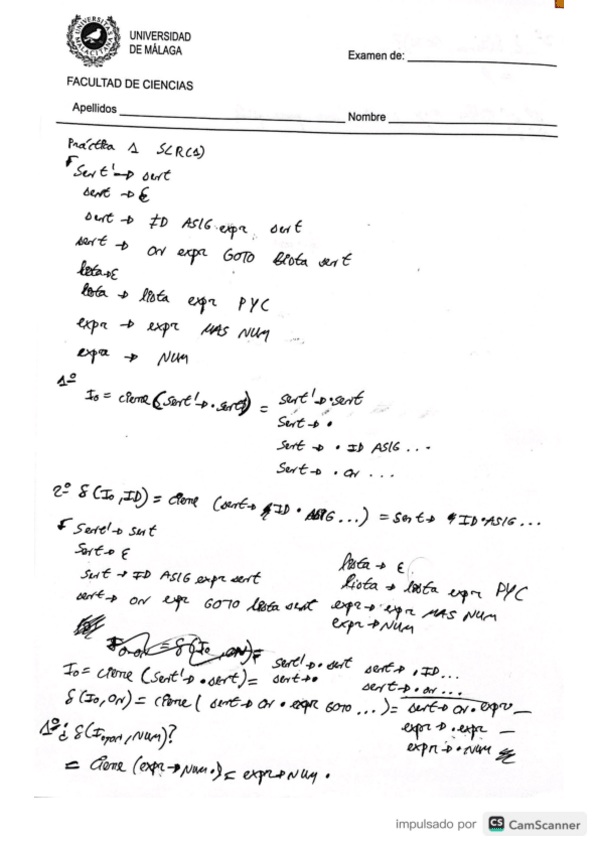 UNIVERSIDAD
DE MÁLAGA
Examen de:
FACULTAD DE CIENCIAS
Apellidos
Nombre
Práctica 1 SLR(1)
Sent' → sent
sent → ε
sent → ID ASIG expr sent
sent → ON expr GOTO lista sent
lista → ε
lista → lista expr PYC
expr → expr MAS NUM
expr → NUM
1º
I₀ = cierre (sent' → · sent) = sent' → · sent
sent → ·
sent → · ID ASIG ...
sent → · ON ...
2º δ(I₀, ID) = cierre (sent → ID · ASIG ...) = sent → ID · ASIG ...
Sent' → sent
sent → ε
sent → ID ASIG expr sent
sent → ON expr GOTO lista sent
lista → ε
lista → lista expr PYC
expr → expr MAS NUM
expr → NUM
I₀ = cierre (sent' → · sent) = sent' → · sent sent → · ID ...
sent → · sent → · ON ...
δ(I₀, ON) = cierre (sent → ON · expr GOTO ...) = sent → ON · expr —
expr → · expr —
expr → · NUM
1º ¿ δ(I₀,ON, NUM)?
= cierre (expr → NUM ·) = expr → NUM ·
impulsado por CS CamScanner